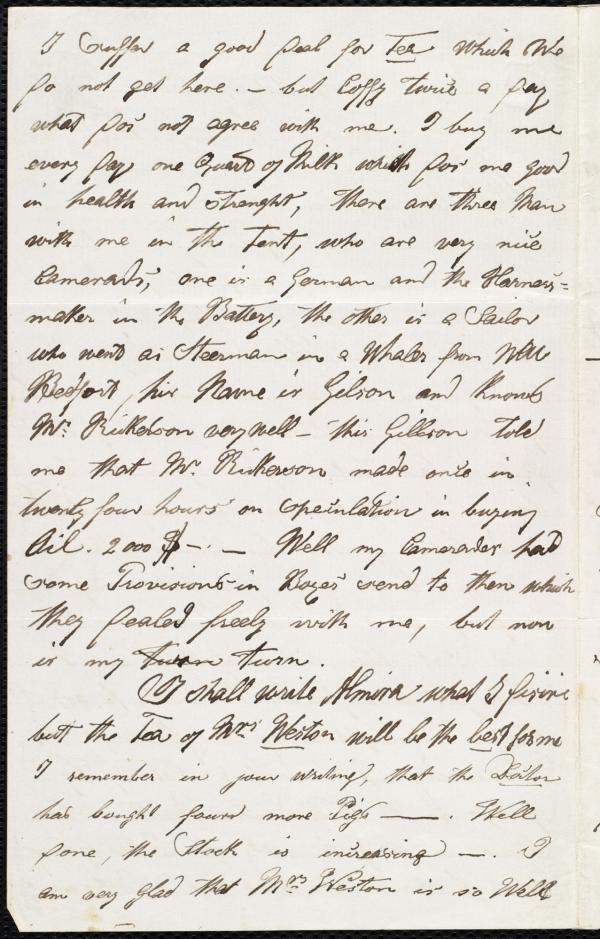 I suffer a good deal for Tea which We
do not get here. – but Coffy twice a day
what dos' not agree with me. I buy me
every day one Quart of Milk which dos' me good
in health and strenght, there are three Man
with me in the Tent, who are very nice
Camerads, one is a German and the Harness=
maker in the Battery, the other is a Sailor
who went as Steerman in a Whaler from New
Bedfort, his Name is Gilson and Knows
Mr. Rickerson very well – this Gillson told
me that Mr. Rickerson made once in
twenty four hours on speculation in buying
Oil. 2000 $ –. – Well my Camerades had
some Provisions in Boxes send to then which
they dealed freely with me, but now
is my turn.
I shall write Almira what I desire
but the Tea of Mrs Weston will be the best for me
I remember in your writing, that the Doctor
has bought fourd more Pigs –. Well
done, the Stock is increasing –. I
am very glad that Mrs Weston is so Well